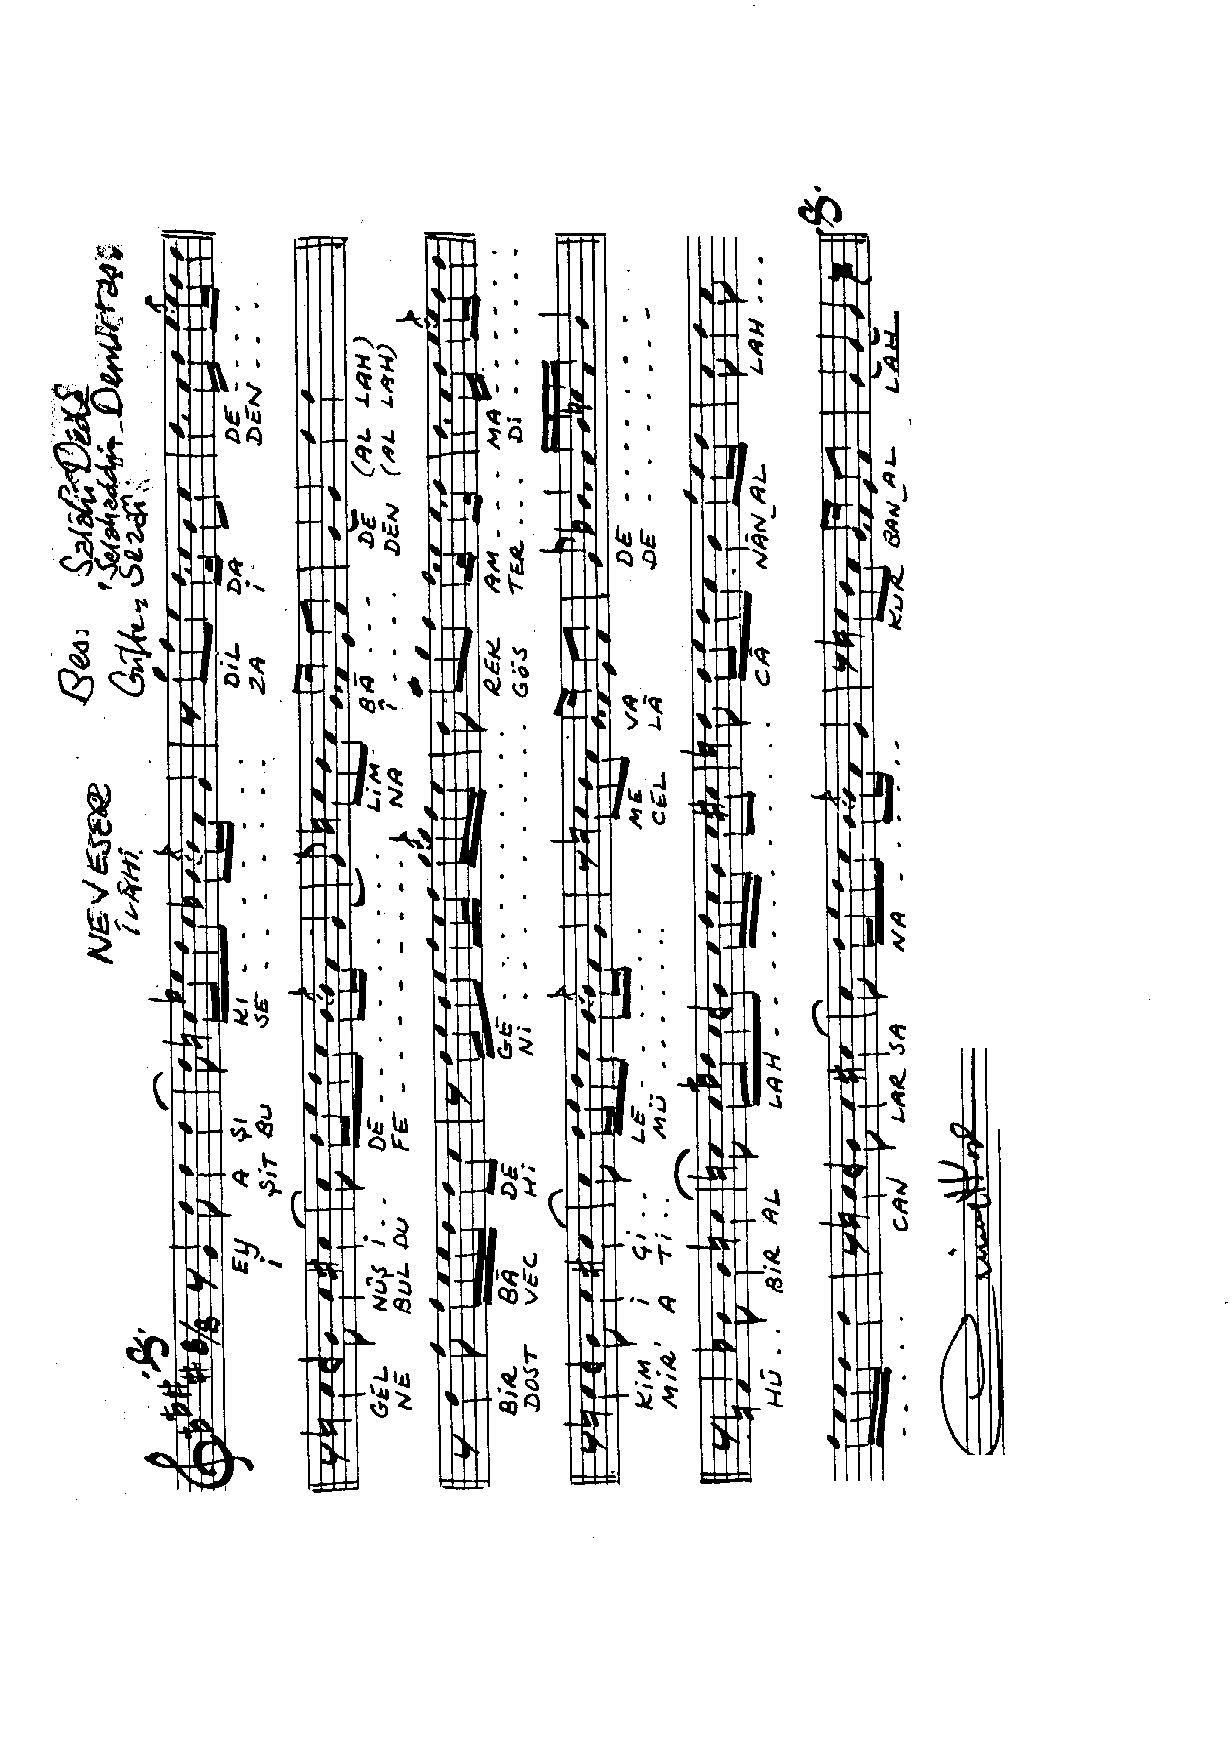 NEVESER
İLÂHİ
Bes: Salâhi Dede
"Selahaddin Demirtaş"
Güfte: Sezâi
8/8
EY A ŞI KI . . . . . DİL DA DE . . . .
İ ŞİT BU SE . . . . . ZA İ DEN . . . .
GEL NÛŞ İ . . DE . . . . . . . . LİM BÂ . . . DE (AL LAH)
NE BUL DU FE . . . . . . . . NA Î . . . . DEN (AL LAH)
BİR BÂ DE GE . . . . . . . . REK AM . . . MA . . . . . .
DOST VEC Hİ Nİ . . . . . . . . GÖS TER . . . DI . . . . . .
KİM İ Çİ . . LE . . . . . ME VA DE . . . . . .
MİR' A Tİ . . . MÜ . . . . . CEL LÂ DE . . . . . .
HÛ . . BİR AL LAH . . . . . . . . . . CÂ . NÂN_AL LAH . . .
. . . . CAN LAR SA NA . . . . . KUR BAN_AL LAH